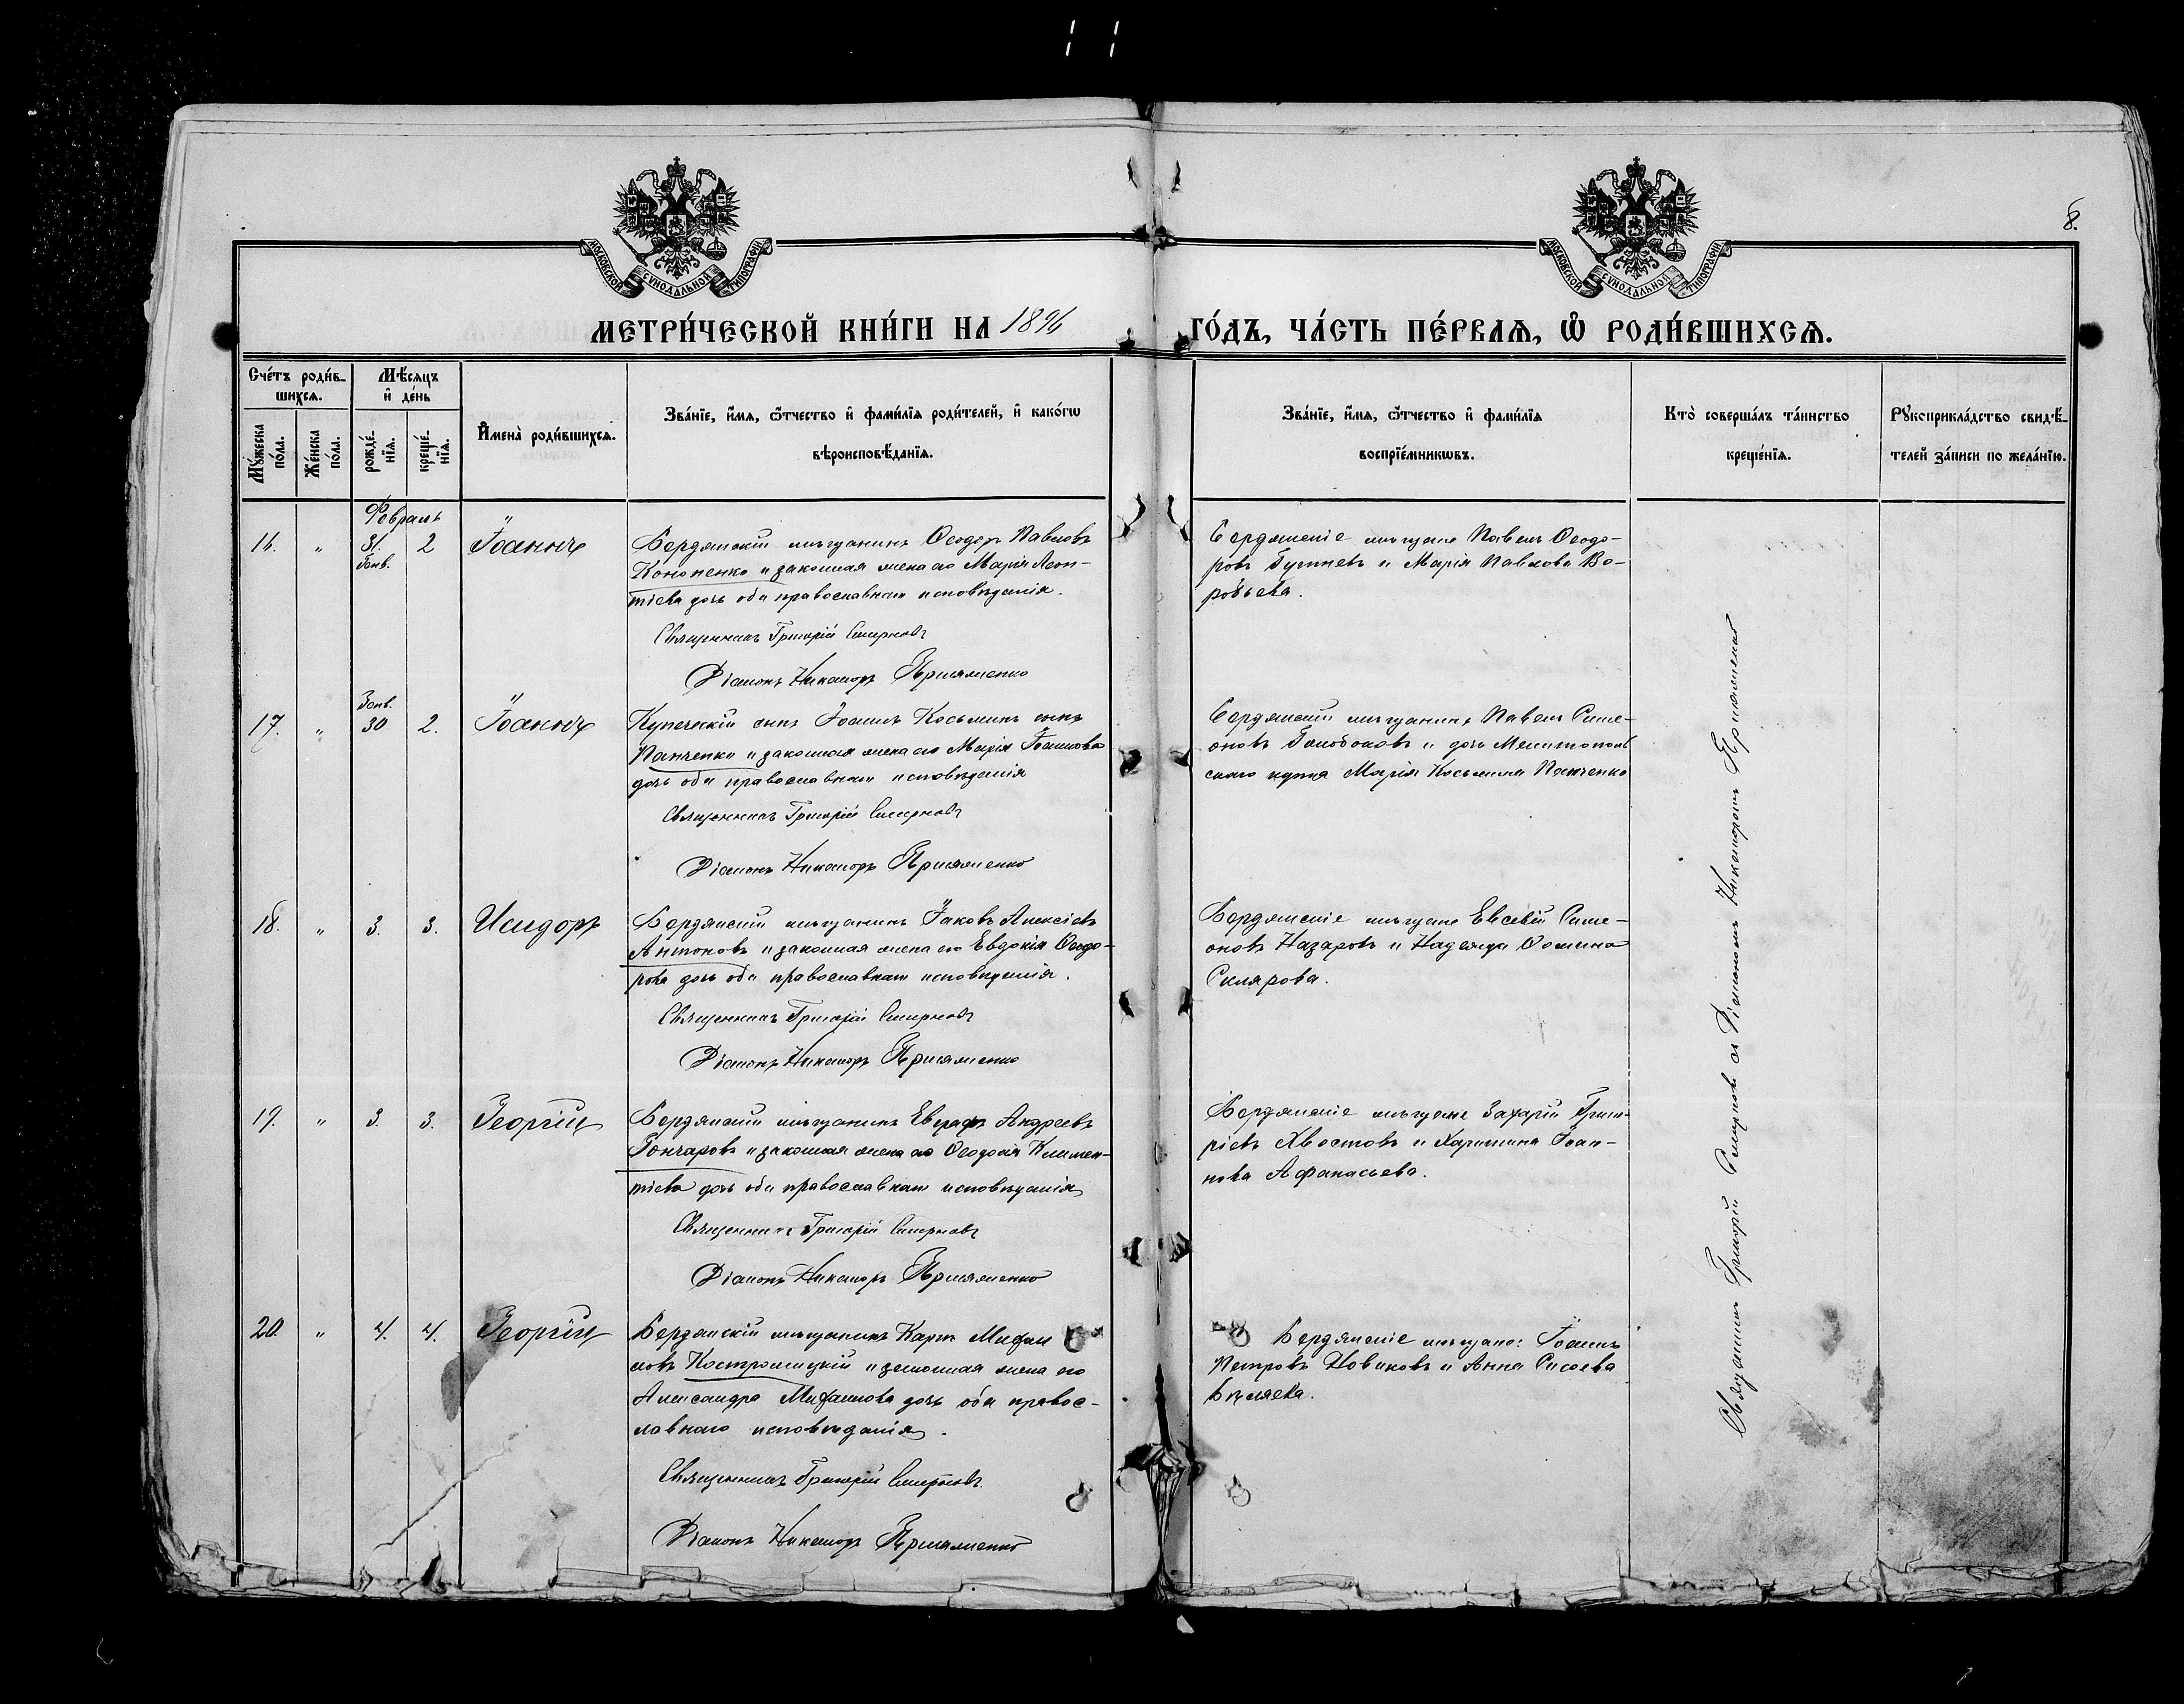 8.
МОСКОВСКОЙ СѴНОДАЛЬНОЙ ТИПОГРАФІИ
МОСКОВСКОЙ СѴНОДАЛЬНОЙ ТИПОГРАФІИ
МЕТРИ́ЧЕСКОЙ КНИ́ГИ НА 1896 ГО́ДЪ, ЧА́СТЬ ПЕ́РВАѦ, Ѡ҆ РОДИ́ВШИХСѦ.
Сче́тъ роди́в-
шихсѧ.
Мѣ́сѧцъ
и҆ де́нь
Мꙋ́жеска
по́ла.
Же́нска
по́ла.
рожде́-
нїѧ.
креще́-
нїѧ.
И҆мена̀ роди́вшихсѧ.
Зва́нїе, и҆́мѧ, ѻ҆́тчество и҆ фами́лїѧ роди́телей, и҆ како́гѡ
вѣроисповѣ́данїѧ.
Зва́нїе, и҆́мѧ, ѻ҆́тчество и҆ фами́лїѧ
воспрїе́мникѡвъ.
Кто̀ соверша́лъ та́инство
креще́нїѧ.
Рꙋкоприкла́дство свидѣ́-
телей за́писи по жела́нїю.
Февраль
16. " 31. Янв. 2 Іоаннъ
Бердянскій мѣщанинъ Ѳеодоръ Павловъ
Кононенко и законная жена его Марія Леон-
тіева дочь оба православнаго исповѣданія.
Священникъ Григорій Смирновъ
Діаконъ Никаноръ
Бердянскіе мѣщане Павелъ Ѳеодо-
ровъ и Марія Павлова Во-
робьева.
17. " Янв. 30 2. Іоаннъ
Купеческій сынъ Іоаннъ Косьминъ сынъ
Панченко и законная жена его Марія Іоаннова
дочь оба православнаго исповѣданія
Священникъ Григорій Смирновъ
Діаконъ Никаноръ
Бердянскій мѣщанинъ Павелъ Симе-
оновъ Голобоковъ и дочь Мелитополь
скаго купца Марія Косьмина Панченко
18. " 3. 3. Исидоръ
Бердянскій мѣщанинъ Іаковъ Алексіевъ
Антоновъ и законная жена его Евдокія Ѳеодо-
рова дочь оба православнаго исповѣданія.
Священникъ Григорій Смирновъ
Діаконъ Никаноръ
Бердянскіе мѣщане Евсевій Симе-
оновъ Назаровъ и Надежда Ѳомина
Склярова.
19. " 3. 3. Георгій
Бердянскій мѣщанинъ Евграфъ Андреевъ
Гончаровъ и законная жена его Ѳеодосія Климен-
тіева дочь оба православнаго исповѣданія
Священникъ Григорій Смирновъ
Діаконъ Никаноръ
Бердянскіе мѣщане Захарій Григо-
ріевъ Хвостовъ и Харитина Іоан-
нова Афанасьева.
20. " 4. 4. Георгій
Бердянскій мѣщанинъ Карпъ
ловъ и законная жена его
Александра дочь оба правос-
лавнаго исповѣданія.
Священникъ Григорій Смирновъ.
Діаконъ Никаноръ
Бердянскіе мѣщане: Іоаннъ
Петровъ Новиковъ и Анна Сисоева
Бѣляева.
Священникъ Григорій Смирновъ съ Діакономъ Никаноромъ